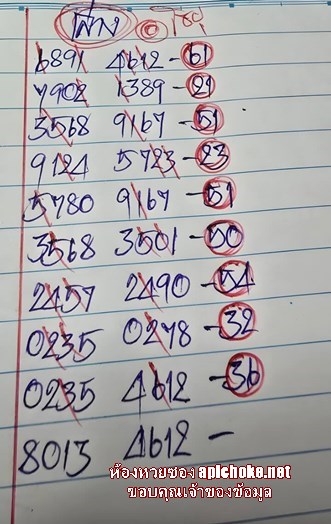 ล่าง
6891 4612 - 61
7902 1389 - 21
3568 9167 - 51
9124 5723 - 23
5780 9167 - 51
3568 3501 - 50
2457 2490 - 54
0235 0278 - 32
0235 4612 - 36
8013 4612 -
ห้องหวยซอง apichoke.net
ขอบคุณเจ้าของข้อมูล